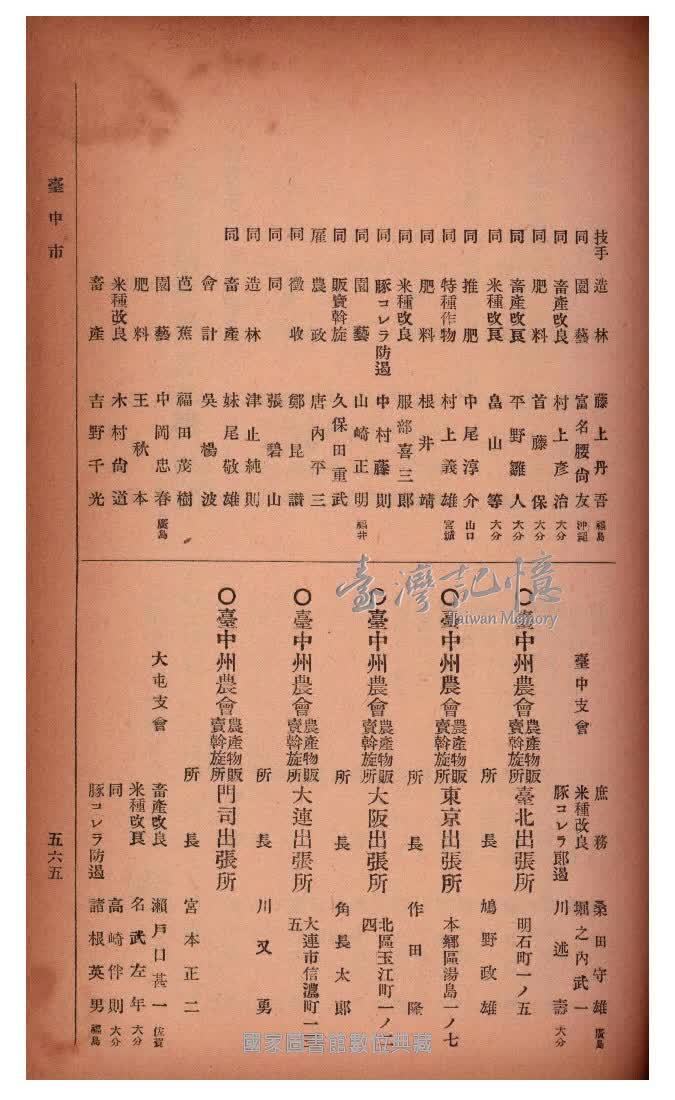 技手 造林 藤上丹吾 福島
同 園藝 富名腰尙友 沖繩
同 畜產改良 村上彥治 大分
同 肥料 首藤保 大分
同 畜產改良 平野雛人 大分
同 米種改良 畠山等 大分
同 推肥 中尾淳介 山口
同 特種作物 村上義雄 宮城
同 肥料 根井靖
同 米種改良 服部喜三郎
同 豚コレラ防遏 中村藤則
同 園藝 山崎正明 福井
同 販賣斡旋 久保田重武
雇 農政 唐內平三
同 徵收 鄭昆讚
同 同 張碧山
同 造林 津止純則
同 畜產 妹尾敬雄
會計 吳楊波
芭蕉 福田茂樹
園藝 中岡忠春 廣島
肥料 王秋本
米種改良 木村尙道
畜產 吉野千光
臺中市
臺中支會
庶務 桑田守雄 廣島
米種改良 堀之內武一
豚コレラ郞遏 川述壽 大分
○臺中州農會農產物販賣斡旋所臺北出張所
明石町一ノ五
所長 鳩野政雄
○臺中州農會農產物販賣斡旋所東京出張所
本鄉區湯島一ノ七
所長 作田隆
○臺中州農會農產物販賣斡旋所大阪出張所
北區玉江町一ノ二四
所長 角長太郞
○臺中州農會農產物販賣斡旋所大連出張所
大連市信濃町一三五
所長 川又勇
○臺中州農會農產物販賣斡旋所門司出張所
所長 宮本正二
大屯支會
畜產改良 瀨戶口甚一 佐賀
米種改良 名武左年 大分
同 高崎伴則 大分
豚コレラ防遏 諸根英男 福島
五六五
臺灣記憶
Taiwan Memory
國家圖書館數位典藏